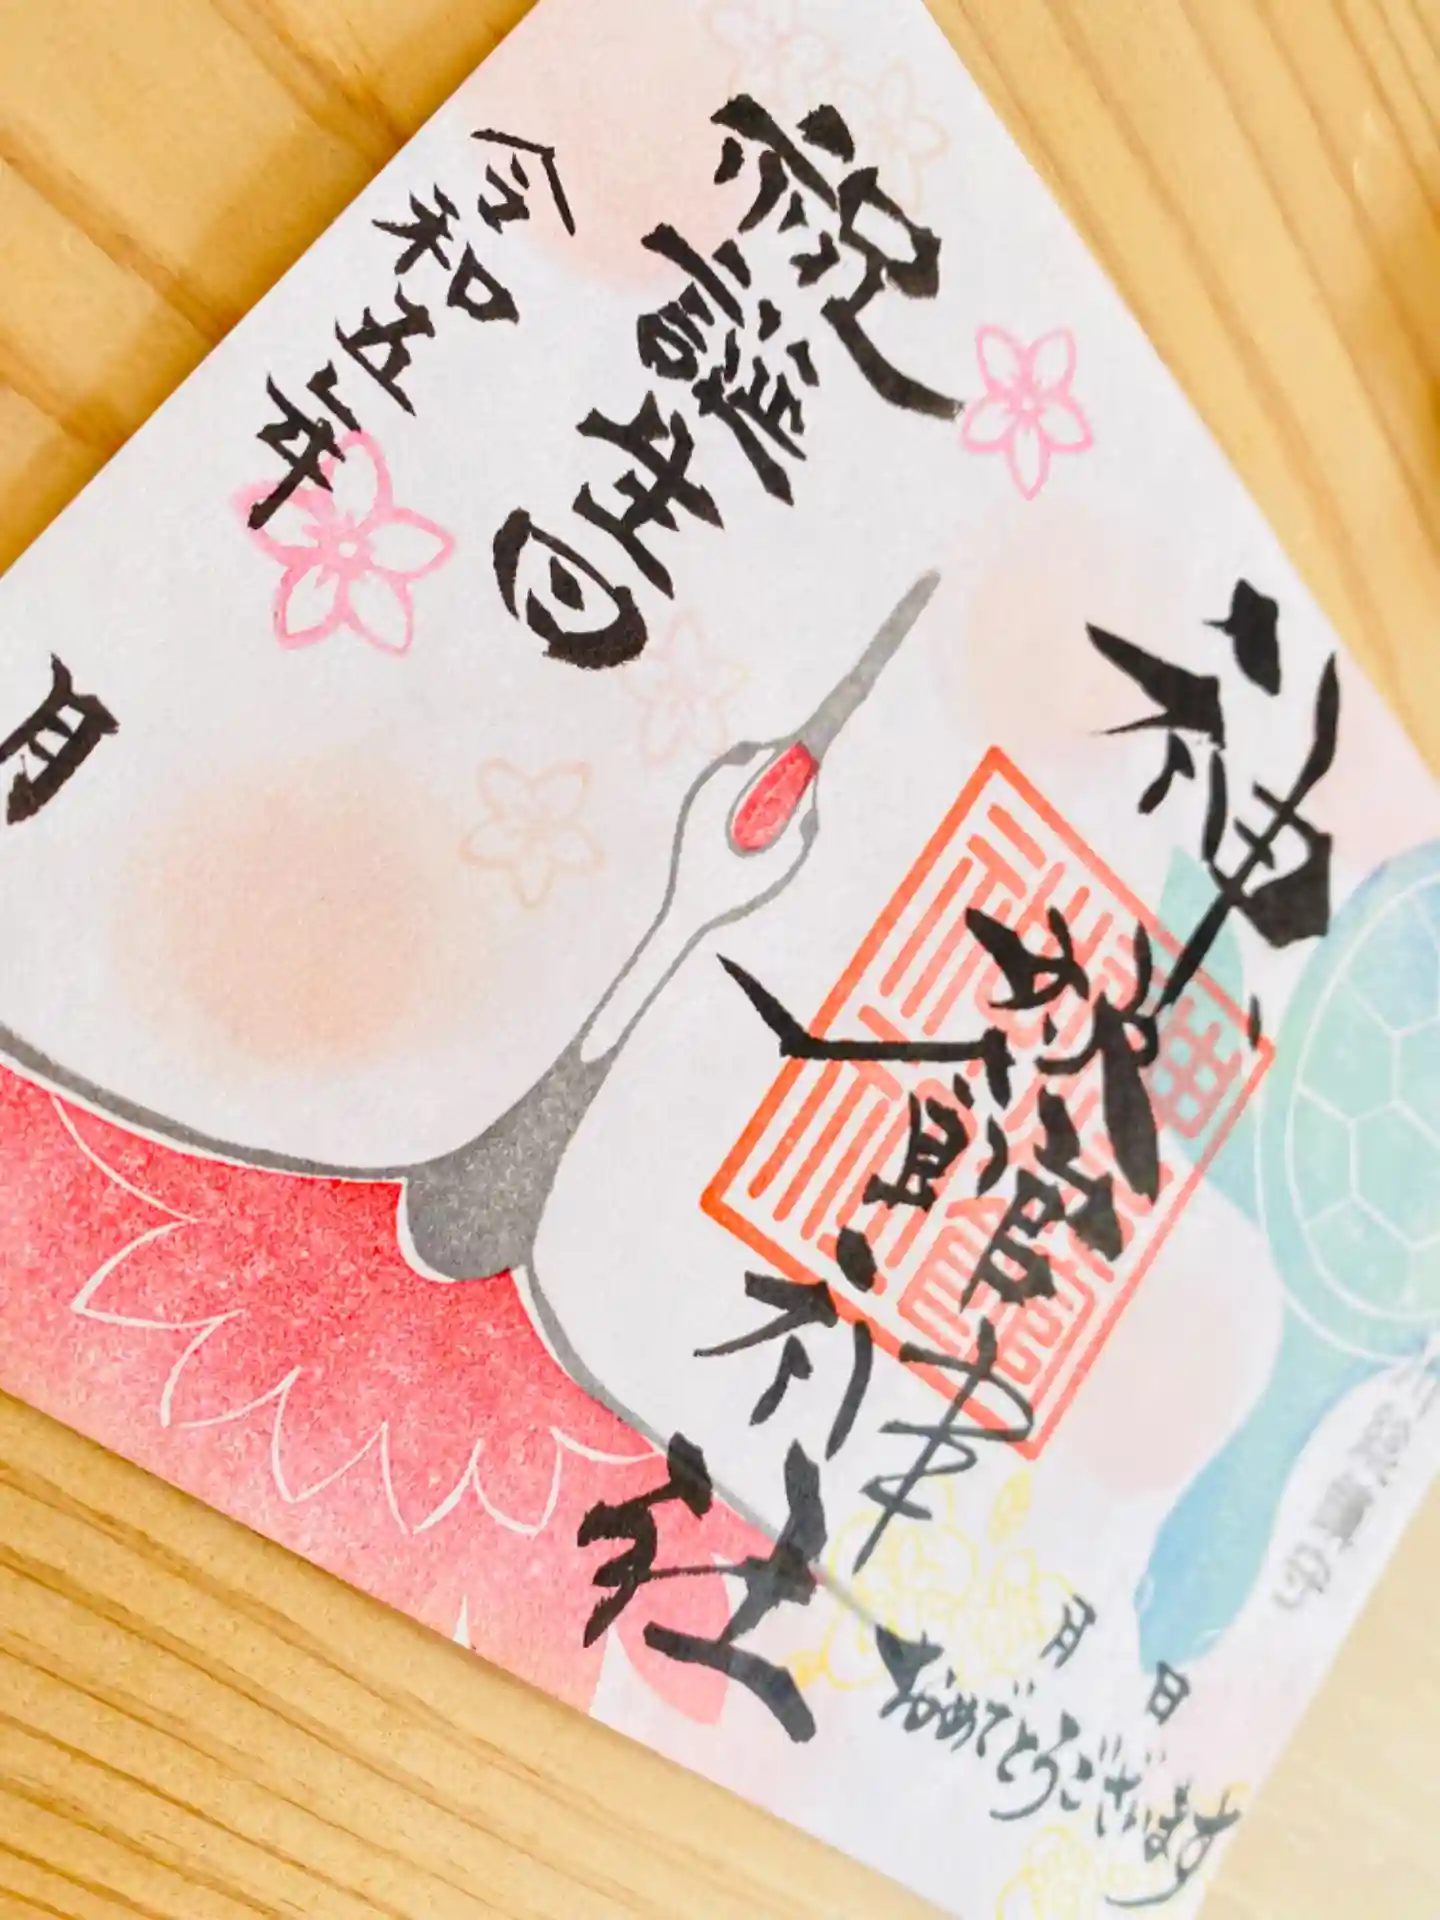 祝誕生日
神炊館神社
令和五年
月
月 日
おめでとうございます